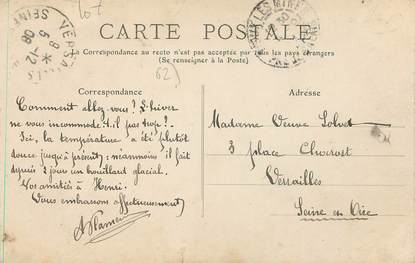 107
CARTE POSTALE
La Correspondance au recto n'est pas acceptée par tous les pays étrangers
(Se renseigner à la Poste)
62
Correspondance
Adresse
Comment allez-vous? L'hiver
ne vous incommode-t-il pas trop?-
Ici, la température a été plutôt
douce jusqu'à présent; néanmoins il fait
depuis 2 jours un brouillard glacial.
Vos amitiés à Henri.
Vous embrassons affectueusement
Madame Veuve
3 place
Versailles
Seine et Oise